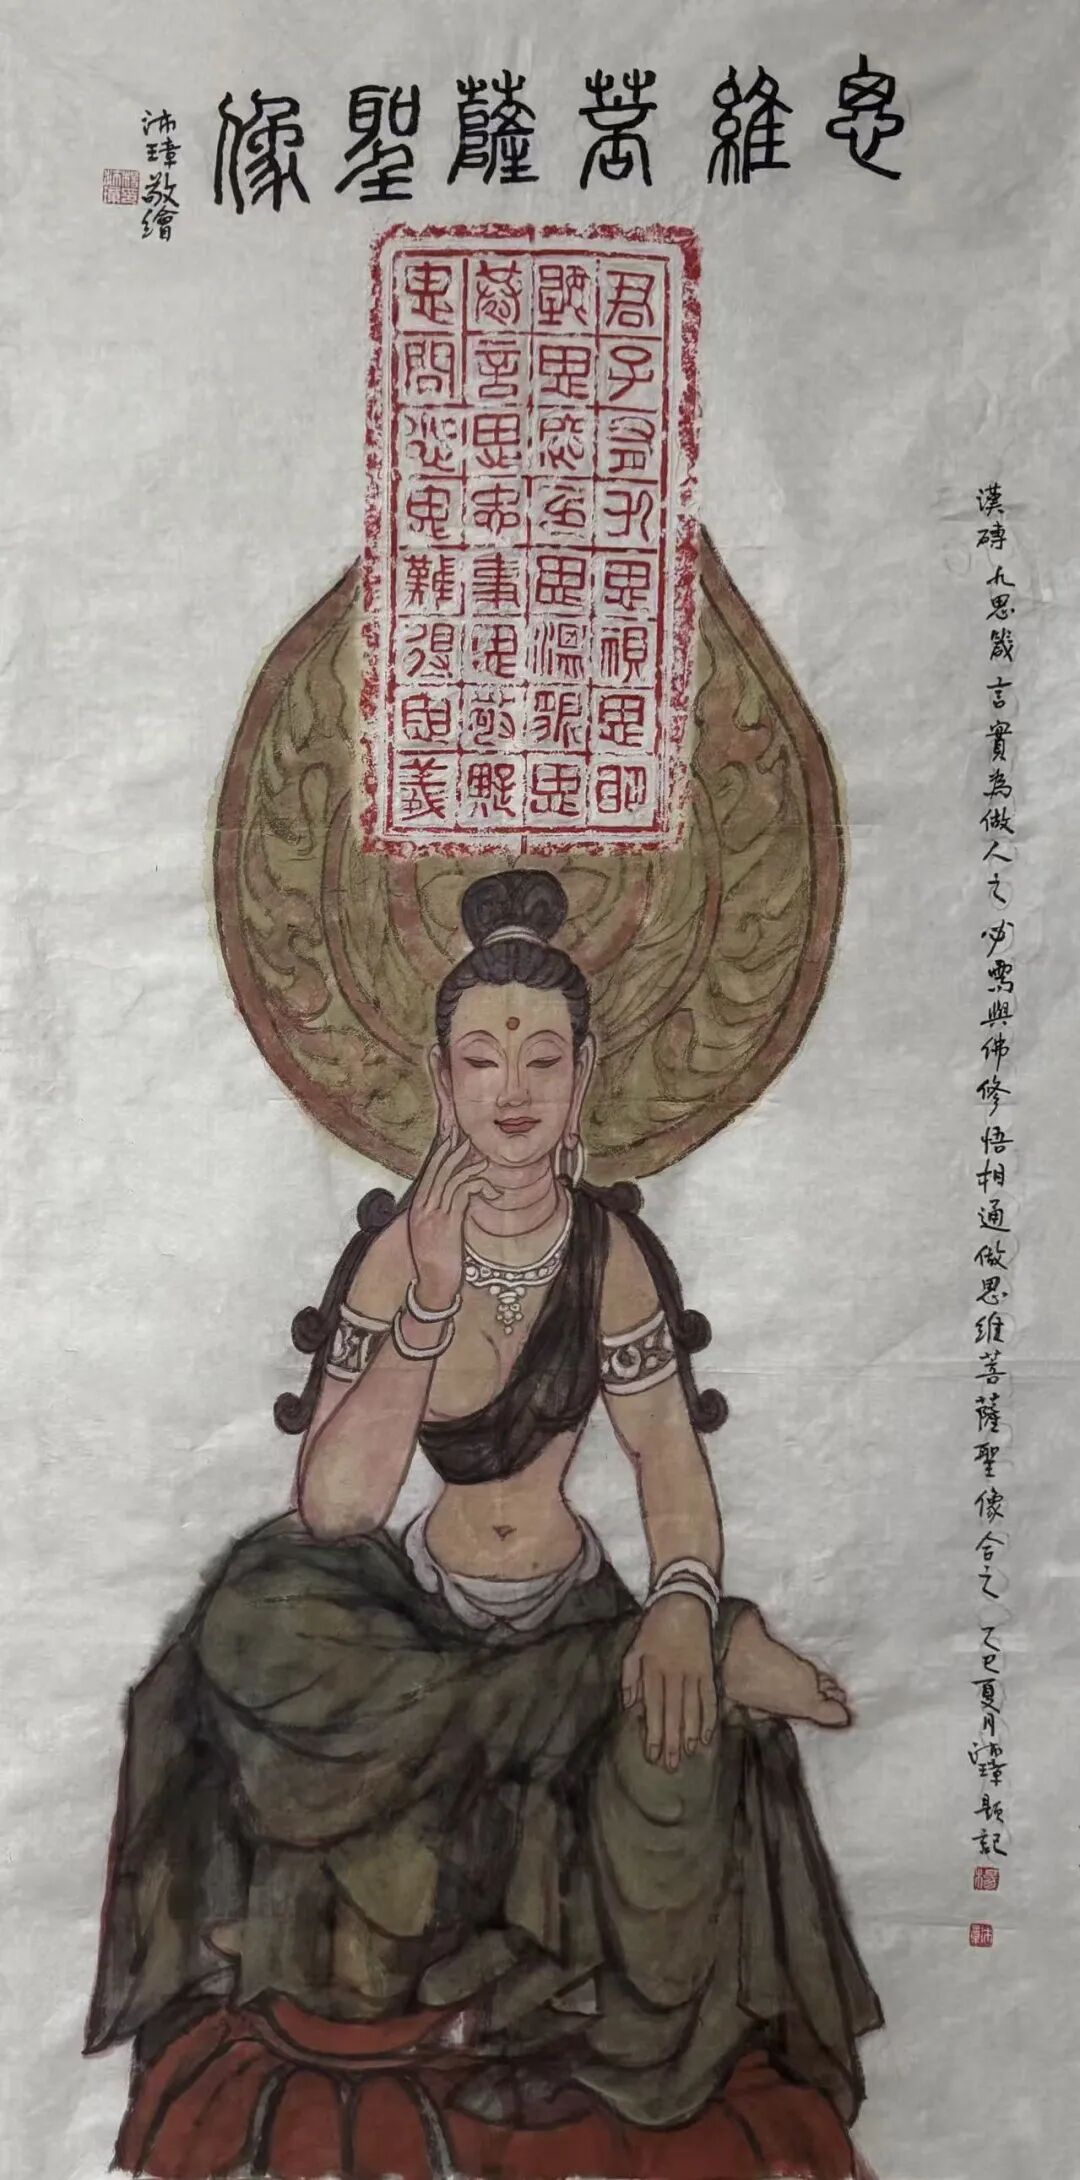 思維菩薩聖像
沛璋敬繪
君子有九思視思明
聽思聰色思溫貌思
恭言思忠事思敬疑
思問忿思難得思義
漢磚九思箴言實為做人之必需與佛修悟相通做思維菩薩聖像合之 乙巳夏月沛璋題記
楊
沛章